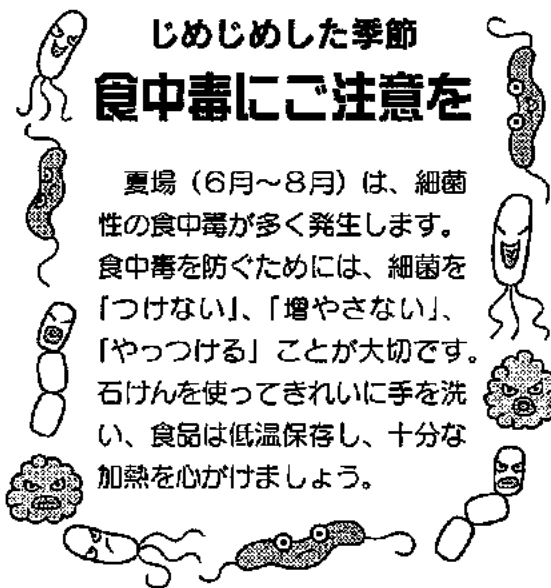 じめじめした季節
食中毒にご注意を
夏場（6月～8月）は、細菌
性の食中毒が多く発生します。
食中毒を防ぐためには、細菌を
「つけない」、「増やさない」、
「やっつける」ことが大切です。
石けんを使ってきれいに手を洗
い、食品は低温保存し、十分な
加熱を心がけましょう。